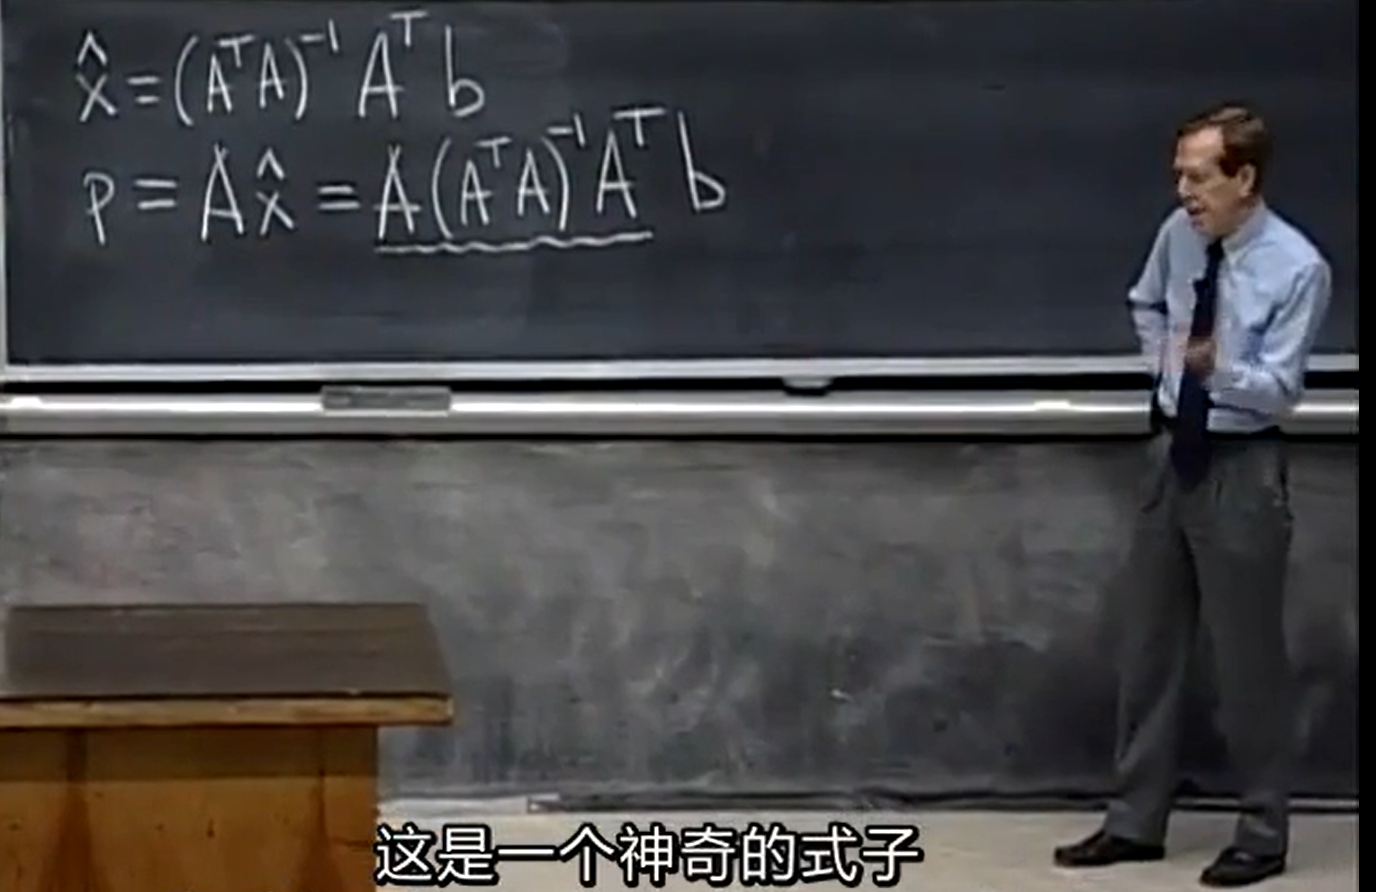 x̂ = (AᵀA)⁻¹ Aᵀ b
p = A x̂ = A (AᵀA)⁻¹ Aᵀ b
这是一个神奇的式子